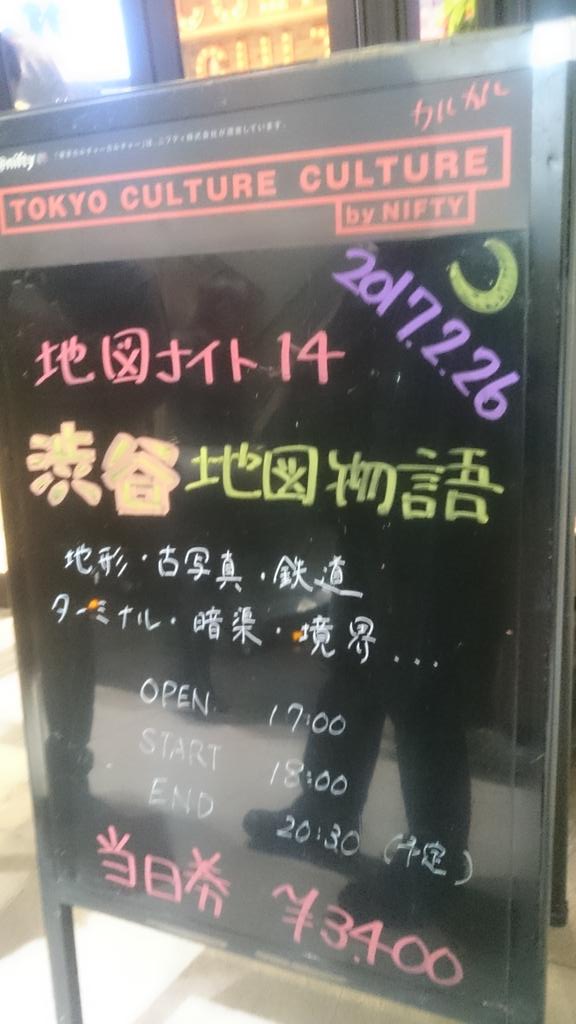 カルカル
@nifty 「東京カルチャーカルチャー」は、ニフティ株式会社が運営しています。
TOKYO CULTURE CULTURE
by NIFTY
2017.2.26
地図ナイト14
渋谷地図物語
地形・古写真・鉄道
ターミナル・暗渠・境界...
OPEN 17:00
START 18:00
END 20:30 (予定)
当日券 ¥3400